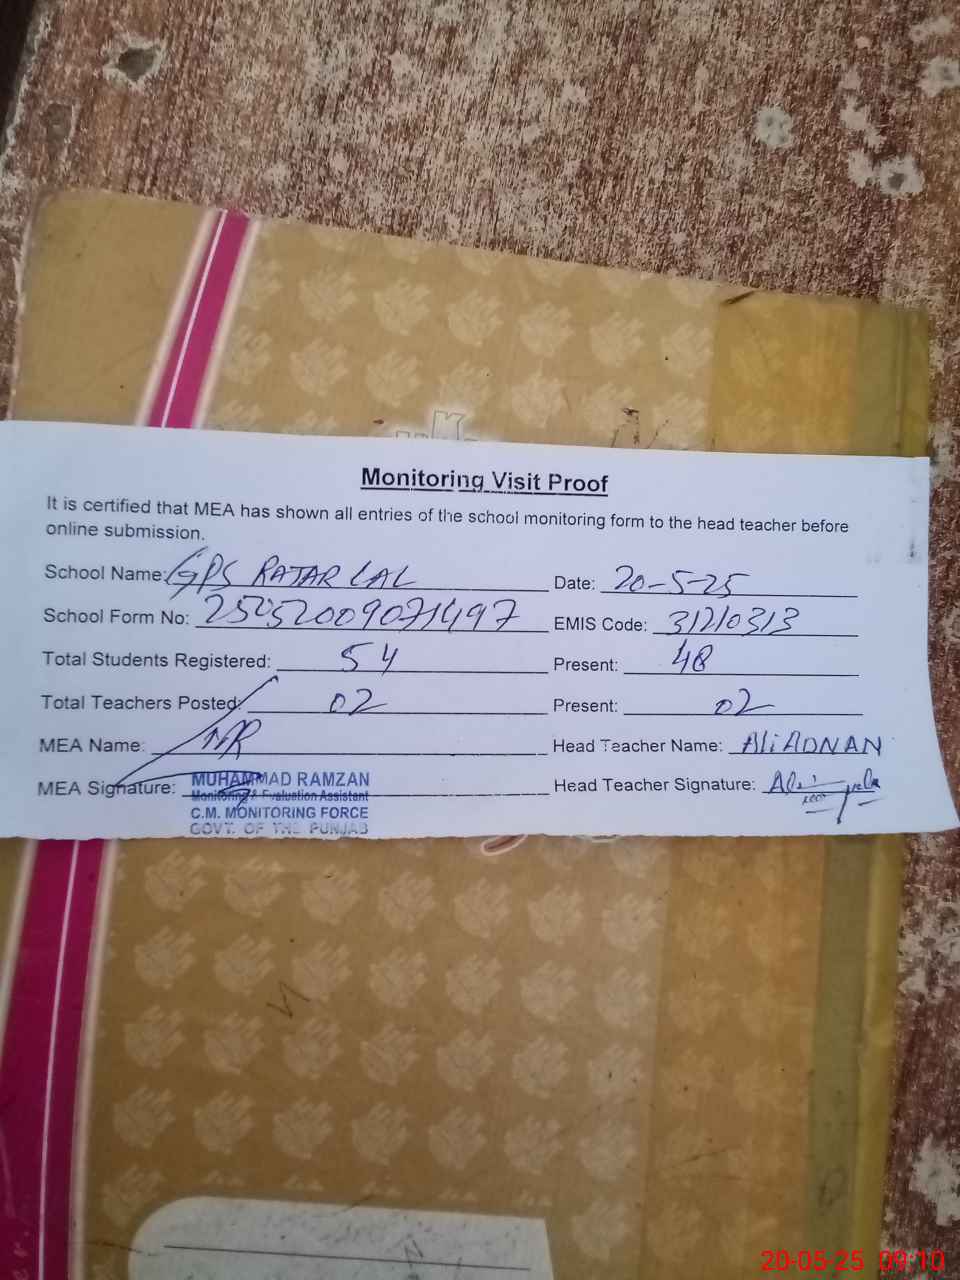 Monitoring Visit Proof
It is certified that MEA has shown all entries of the school monitoring form to the head teacher before
online submission.
School Name: GPS RATAR LAL Date: 20-5-25
School Form No: 25052009071497 EMIS Code: 31210313
Total Students Registered: 54 Present: 48
Total Teachers Posted: 02 Present: 02
MEA Name: MR Head Teacher Name: Ali ADNAN
MEA Signature: Head Teacher Signature:
MUHAMMAD RAMZAN
Monitoring & Evaluation Assistant
C.M. MONITORING FORCE
GOVT. OF THE PUNJAB
20-05-25 09:10